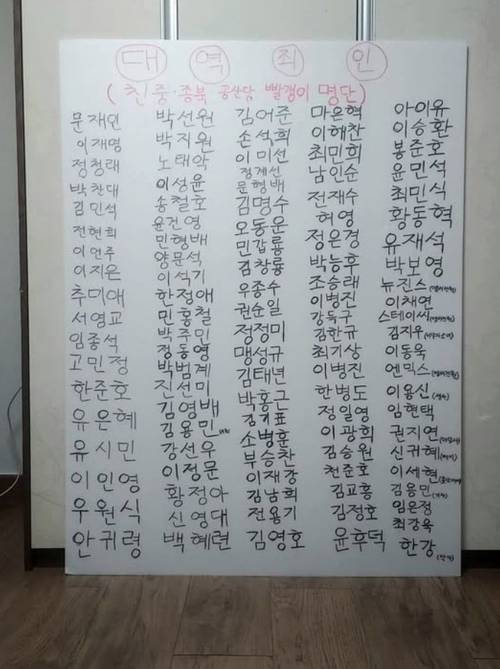 대 역 죄 인
(친중·종북 공산당 빨갱이 명단)
문재인
이재명
정청래
박찬대
김민석
전현희
이언주
이지은
추미애
서영교
임종석
고민정
한준호
유은혜
유시민
이인영
우원식
안귀령
박선원
박지원
노태악
이성윤
송철호
윤건영
민형배
양문석
이석기
한정애
민홍철
박주민
박범계
진선미
김영배
김용민
강선우
이정문
황정아
신영대
백혜련
김어준
손석희
이미선
정계선
문형배
김명수
오동운
민갑룡
김창룡
우종수
권순일
정정미
맹성규
김태년
박홍근
김기표
소병훈
부승찬
이재강
김남희
전용기
김영호
마은혁
이해찬
최민희
남인순
전재수
허영
정은경
박능후
조승래
이병진
강득구
김한규
최기상
이병진
한병도
정일영
이광희
김승원
천준호
김교흥
김정호
윤후덕
아이유
이승환
봉준호
윤민석
최민식
황동혁
유재석
박보영
뉴진스(멤버전원)
이채연
스테이씨(멤버전원)
김지우
이동욱
엔믹스(멤버전원)
이용신(성우)
임현택
권지연
신귀혜
이세현
김용민
임은정
최강욱
한강(작가)